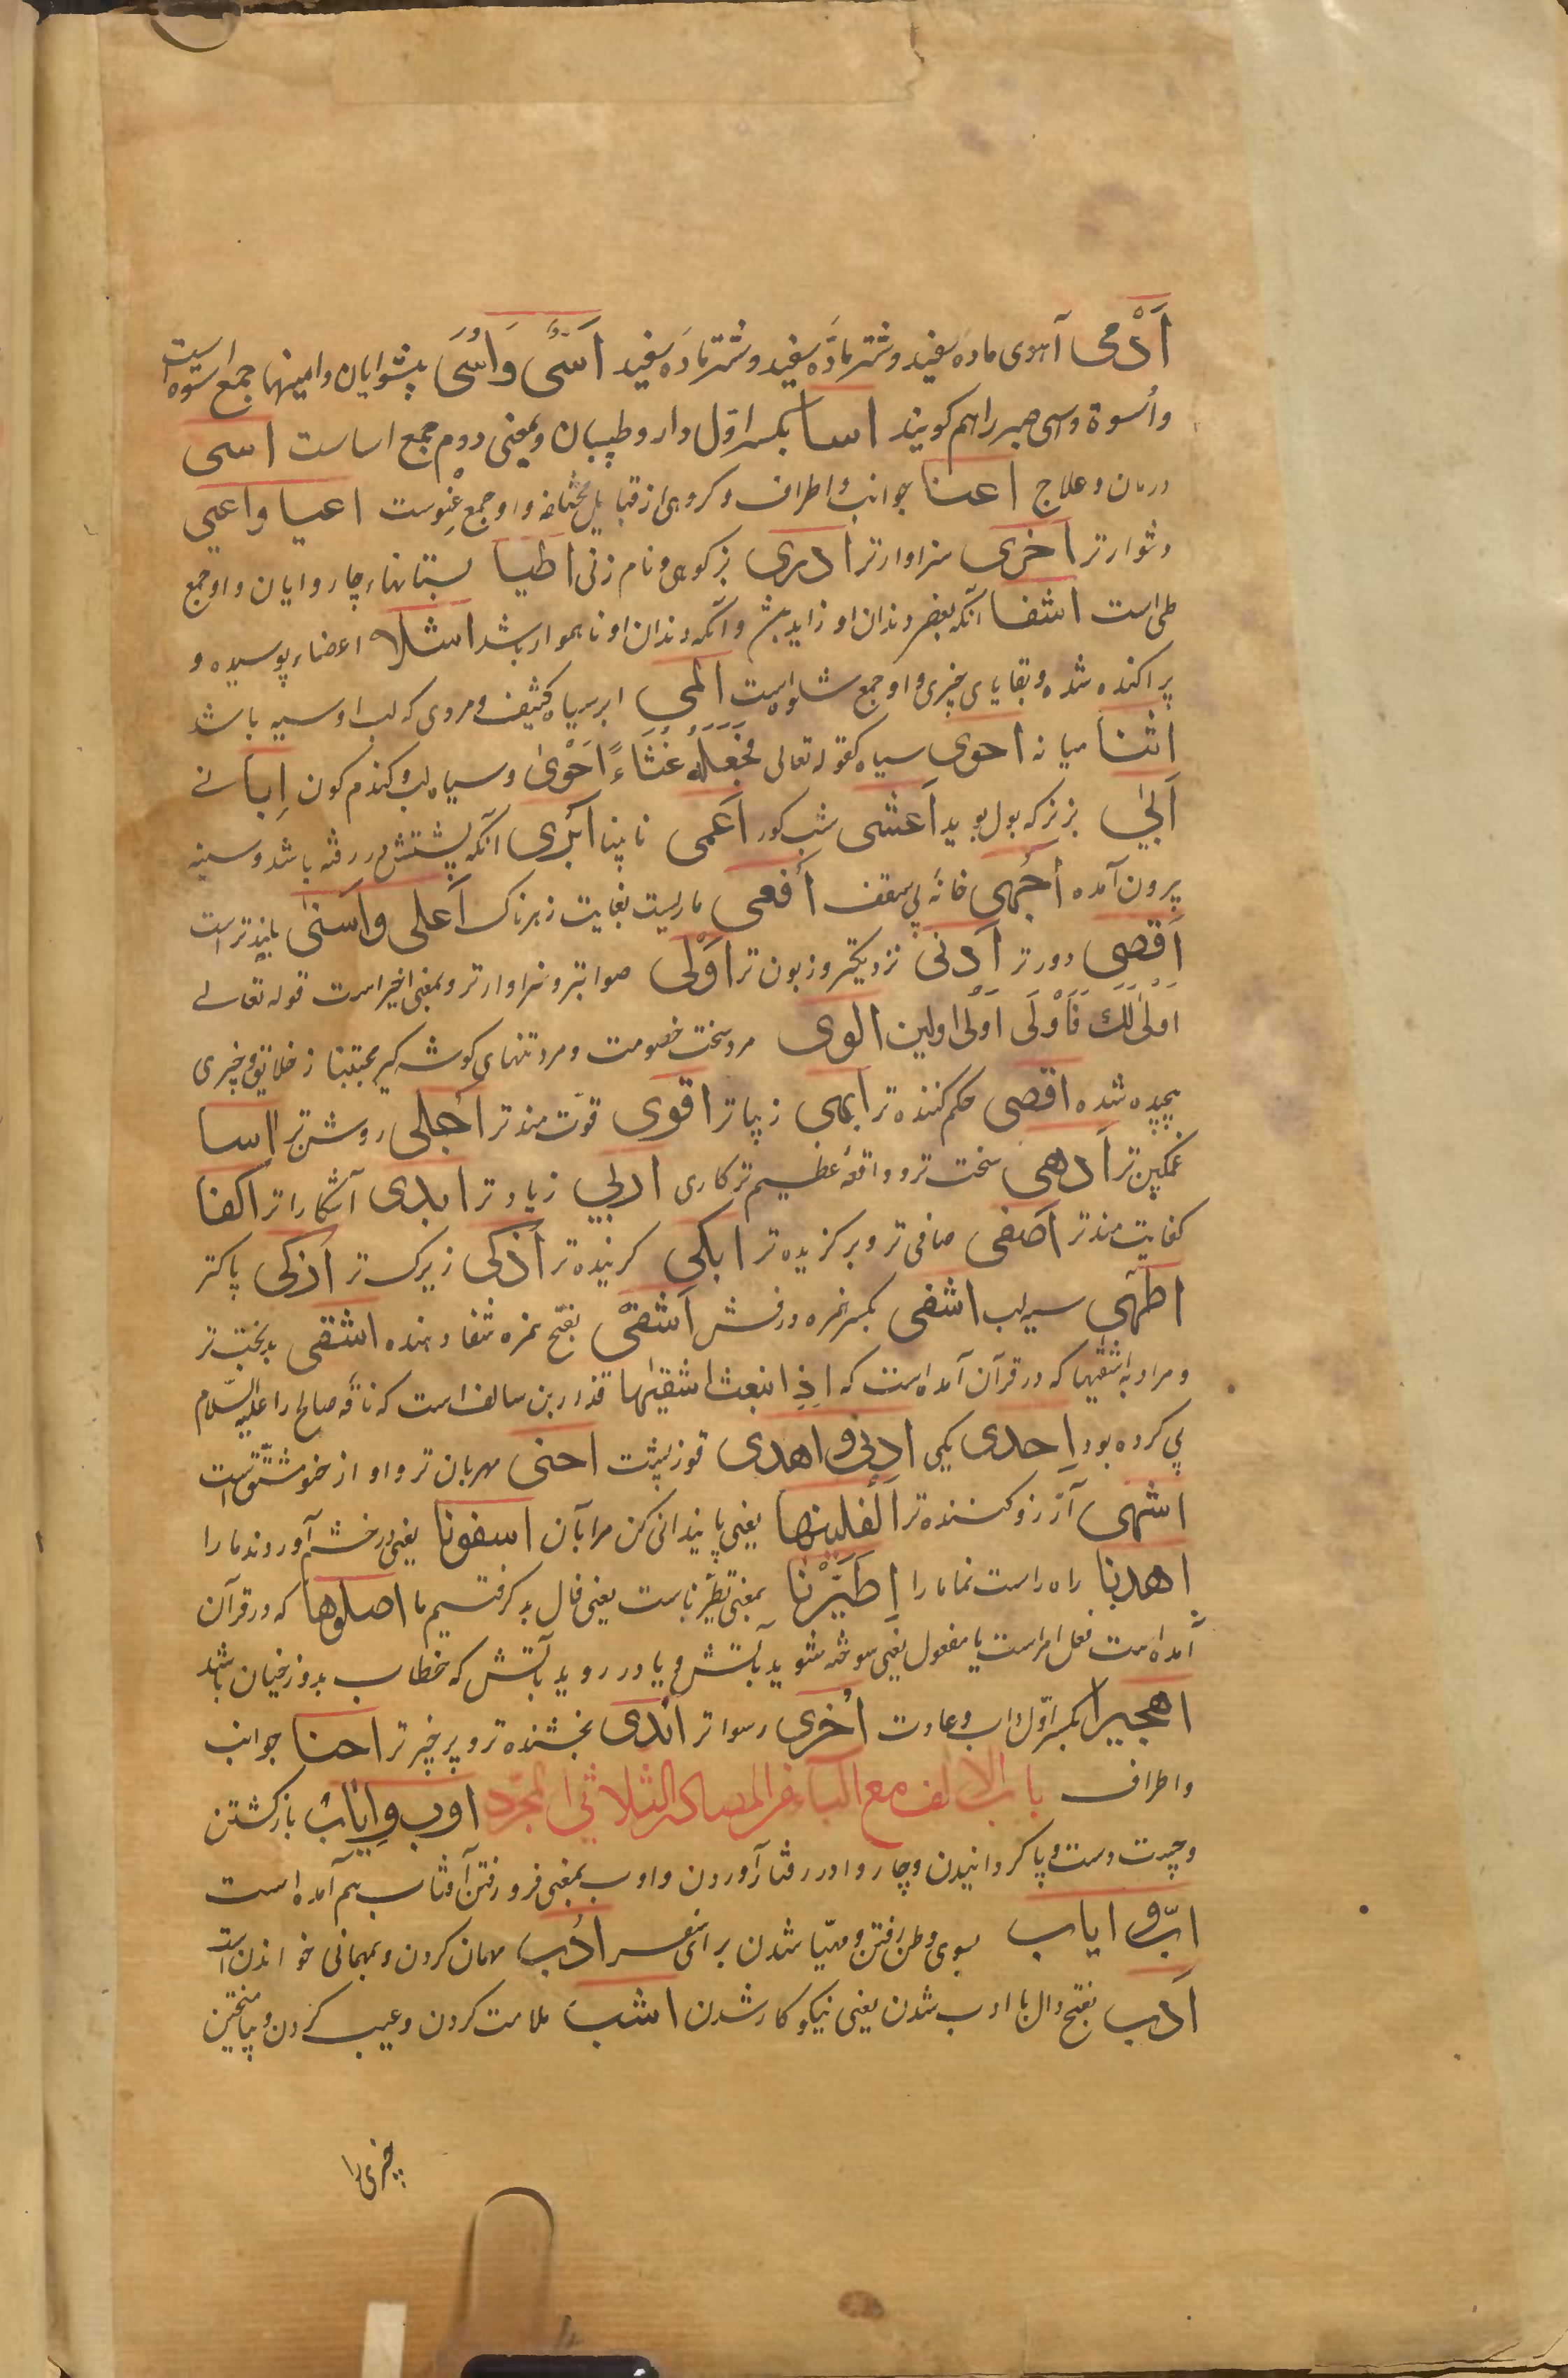 اَدْمی آهوی ماده سفید و شتر ماده سفید و شتر ماده سفید اَسًی وَاُسًی پیشوایان و امینها جمع اسوه است
و اُسوة و سی صبر را هم گویند اسا بکسر اول دارو طبیبان و بمعنی دوم جمع اساست اسی
درمان و علاج اعنا جوانب و اطراف و گروهی از قبایل مختلفه و او جمع عِنوست اعیا و اعیی
دشوارتر اَخری سزاوارتر ادری بز کوهی و نام زنی اطیا پستانهاء چاروایان و او جمع
طی است اشفا آنکه بعضی دندان او زاید باشد و آنکه دندان او ناهموار باشد اشلا اعضاء پوسیده و
پراکنده شده و بقایای چیزی و او جمع شلو است المی ابر سیاه کثیف و مردی که لب او سیه باشد
اثنا میانه احوی سیاه کقوله تعالی فَجَعَلَهُ غُثَاءً اَحْوٰی و سیاه لب و گندم گون اِبا نی
اَبٰی بزیکه بول بوید اَعشی شب کور اَعمی نابینا ابزی آنکه پشتش در رفته باشد و سینه
برون آمده اَجهی خانه بی سقف اَفعی ماریست بغایت زهرناک اَعلی و اَسنی بلندتر است
اَقصی دورتر اَدنی نزدیکتر و زبون تر اَوْلی صوابتر و سزاوارتر و بمعنی اخیر است قوله تعالی
اَوْلٰی لَكَ فَاَوْلَی اَوْلی اولین الوی مرد سخت خصومت و مرد تنهای گوشه گیر مجتنب از خلایق و چیزی
پیچیده شده اقضی حکم کننده تر ابهی زیباتر اقوی قوّت مندتر اَجلی روشن تر اَسا
غمگین تر اَدهی سخت تر و واقعه عظیم تر کاری اربی زیادتر ابدی آشکاراتر اکفا
کفایت مندتر اَصفی صافی تر و برگزیده تر ابکی گرینده تر اَذکی زیرک تر اَزکی پاکتر
اظمی سیه لب اشفی بکسر همزه درفش اَشفی بفتح همزه شفا دهنده اشقی بدبخت تر
و مراد به اشقیها که در قرآن آمده است که اِذِ انبعث اشقیٰها قذار بن سالف است که ناقه صالح را علیه السّلام
پی کرده بود اِحدی یکی ادنی و اهدی قوز پشت احنی مهربان تر و او از حنو مشتق است
اشهی آرزو کننده تر اَکفلینها یعنی پایندانی کن مرا بآن اسفونا یعنی در خشم آوردند ما را
اِهدنا راه راست نما ما را اِطَّیَّرْنا بمعنی تطیرنا ست یعنی فال بد گرفتیم ما اصلوها که در قرآن
آمده است فعل امر است با مفعول یعنی سوخته شوید بآتش و یا در روید بآتش که خطاب بدوزخیان باشد
اهجیرا بکسر اوّل داب و عادت اَخزی رسواتر اَندی بخشنده تر و پر خیرتر احنا جوانب
و اطراف باب الالف مع الباء من المصادر الثلاثی المجرّد اوب و اِیاب بازگشتن
و چست دست و پا گردانیدن و چاروا در رفتار آوردن و اوب بمعنی فرو رفتن آفتاب هم آمده است
ابّ و اباب بسوی وطن رفتن و مهیّا شدن برای سفر ادْب مهمان کردن و بمهمانی خواندن است
اَدَب بفتح دال با ادب شدن یعنی نیکو کار شدن اشب ملامت کردن و عیب کردن و بیامیختن
چیزی را